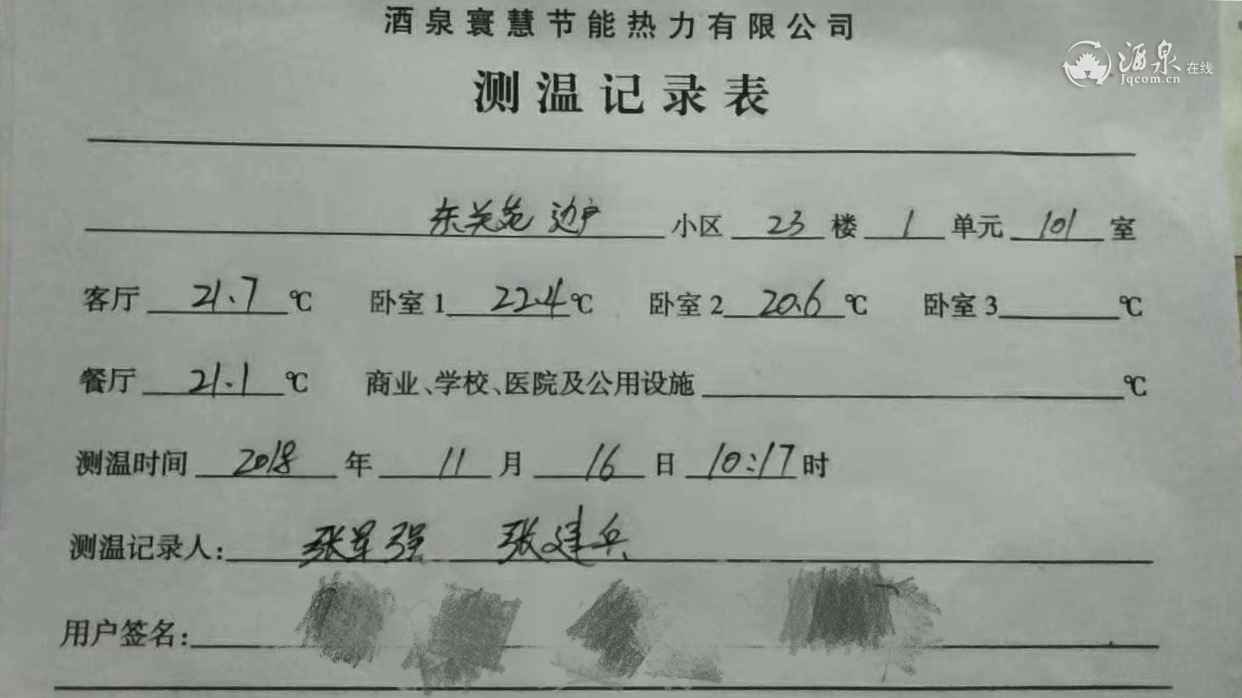 酒泉寰慧节能热力有限公司
酒泉在线
Jqcom.cn
测温记录表
东关苑 边户 小区 23 楼 1 单元 101 室
客厅 21.7 ℃ 卧室1 22.4 ℃ 卧室2 20.6 ℃ 卧室3 ℃
餐厅 21.1 ℃ 商业、学校、医院及公用设施 ℃
测温时间 2018 年 11 月 16 日 10:17 时
测温记录人: 张军强 张建兵
用户签名: